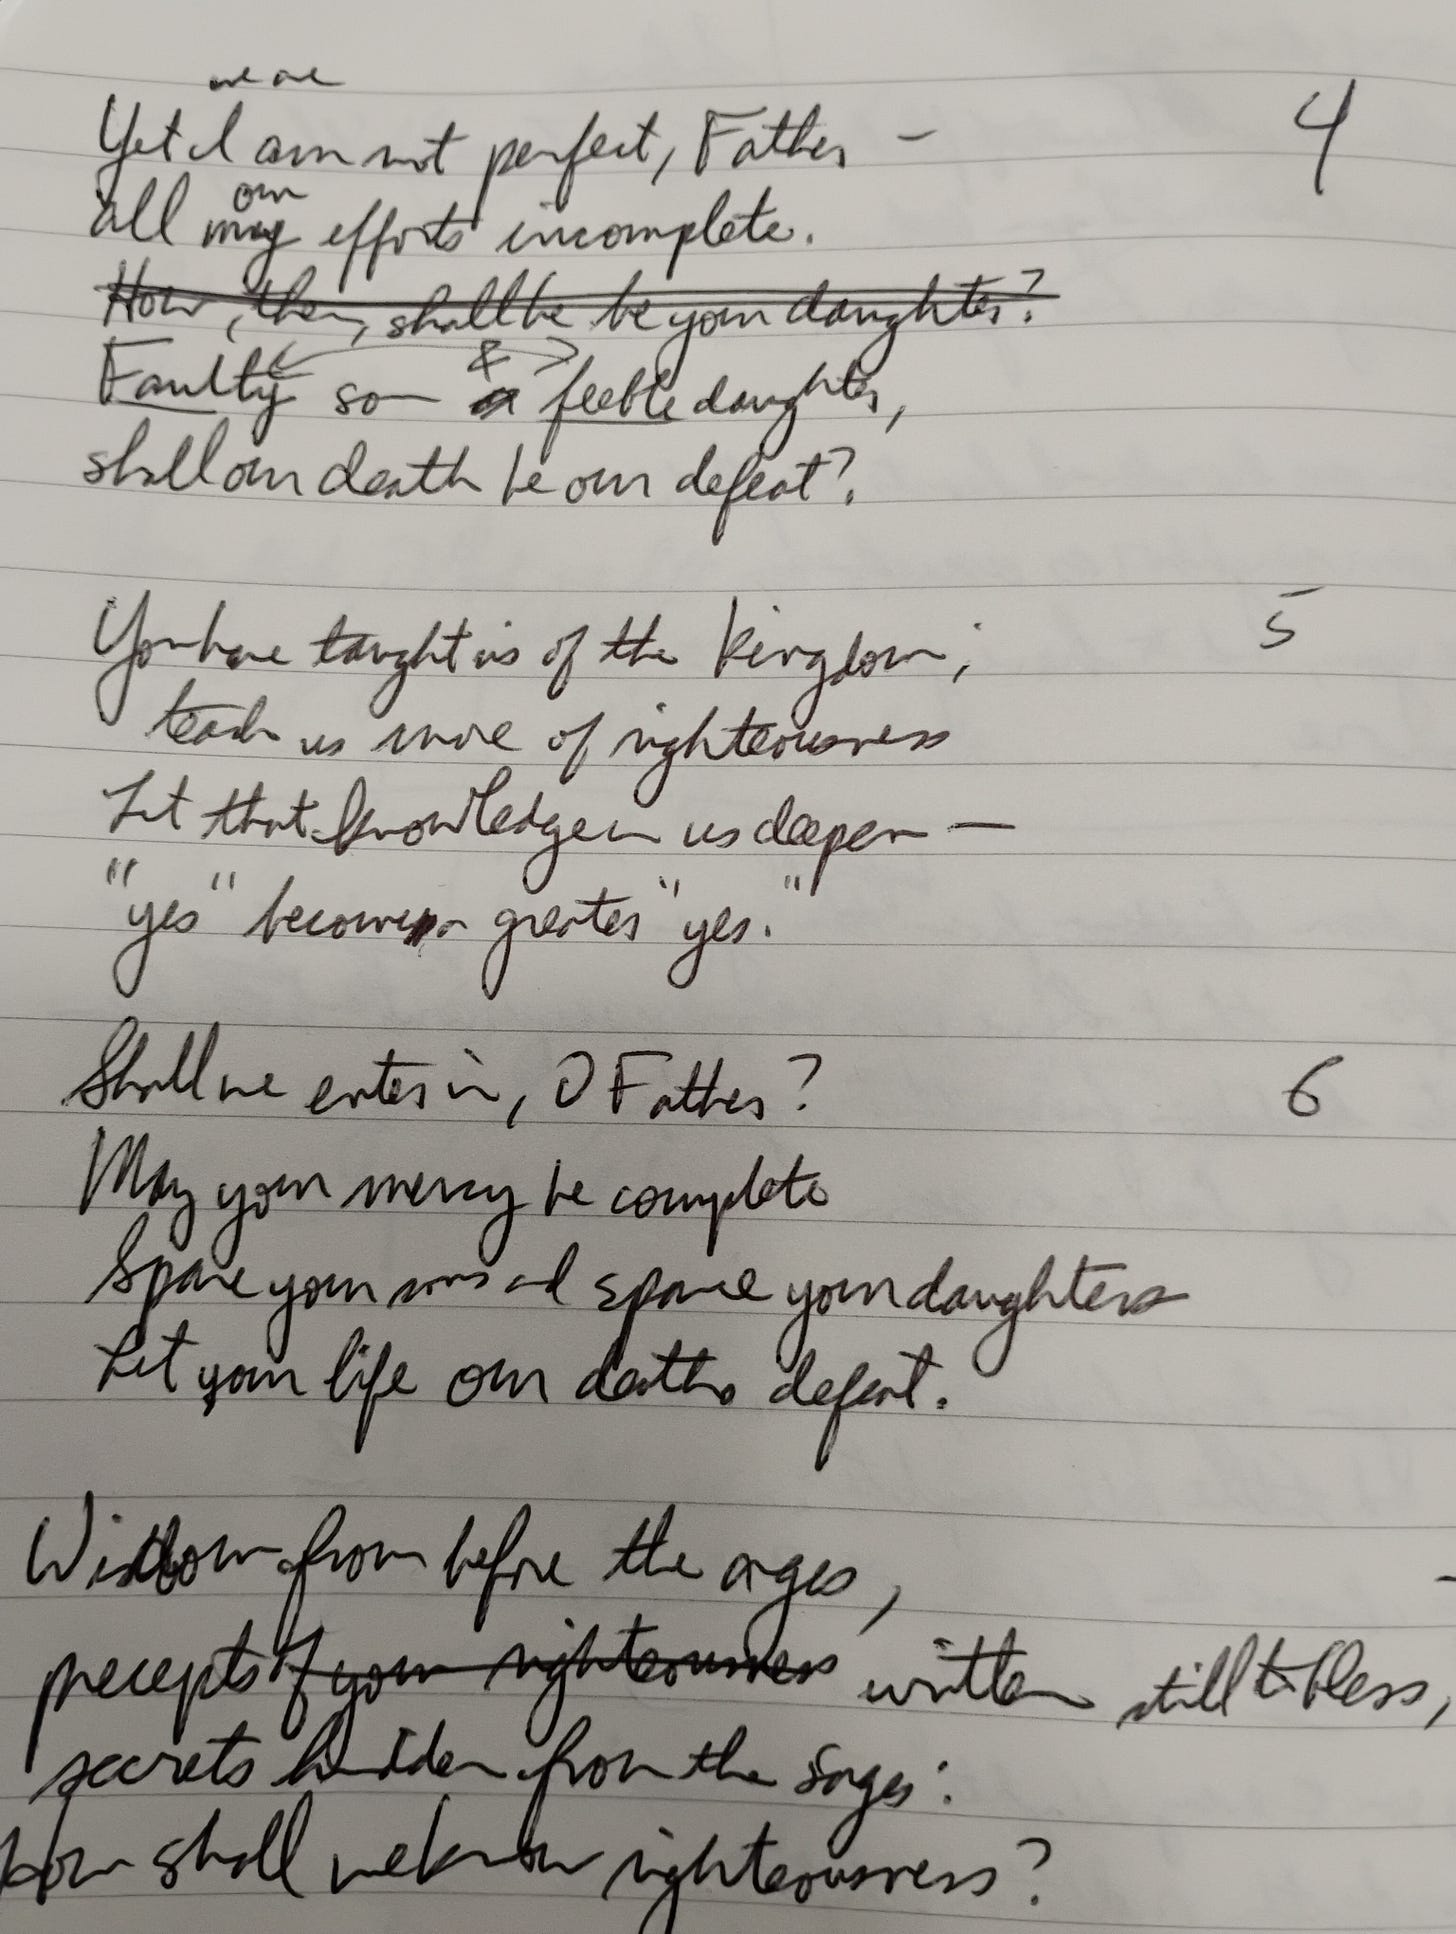 we are
Yet I am not perfect, Father – 4
our
all my efforts incomplete.
How, then, shall he be your daughter?
&
Faulty son or feeble daughter,
shall our death be our defeat?
You have taught us of the kingdom; 5
teach us more of righteousness
Let that knowledge in us deepen —
"yes" become a greater "yes."
Shall we enter in, O Father? 6
May your mercy be complete
Spare your sons and spare your daughters
Let your life our deaths defeat.
Wisdom from before the ages,
precepts of your righteousness written still to bless,
secrets hidden from the sages:
how shall we know righteousness?